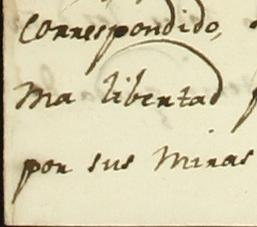 correspondido,
ma libertad
por sus miras